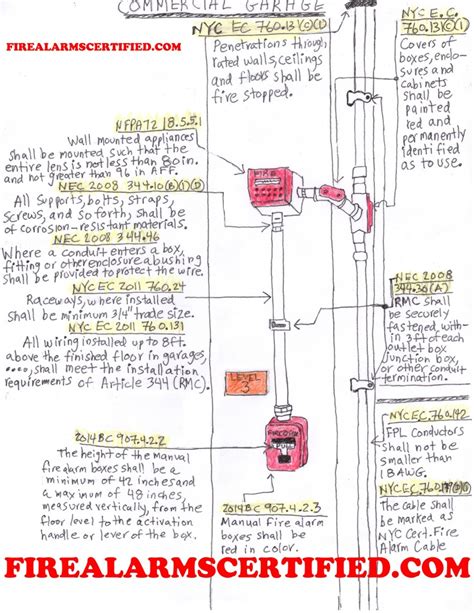 COMMERCIAL GARAGE
FIREALARMSCERTIFIED.COM
NYC EC 760.13(C)(1)
Penetrations through
rated walls, ceilings
and floors shall be
fire stopped.
NYC E.C.
760.13(C)(1)
Covers of
boxes, enclo-
sures and
cabinets
shall be
painted
red and
permanently
identified
as to use.
NFPA72 18.5.5.1
Wall mounted appliances
shall be mounted such that the
entire lens is not less than 80in.
and not greater than 96 in AFF.
NEC 2008 344.10(B)(1)(D)
All Supports, bolts, straps,
Screws, and so forth, shall be
of corrosion-resistant materials.
NEC 2008 344.46
Where a conduit enters a box,
fitting or other enclosure a bushing
shall be provided to protect the wire.
NYC EC 2011 760.24
Raceways, where installed
shall be minimum 3/4" trade size.
NYC EC 2011 760.131
All wiring installed up to 8ft.
above the finished floor in garages,
.... shall meet the installation
requirements of Article 344 (RMC).
FIRE
NEC 2008
344.30(A)
RMC shall
be securely
fastened, with-
in 3ft of each
outlet box
junction box,
or other conduit
termination.
LEVEL
3
2014 BC 907.4.2.2
The height of the manual
fire alarm boxes shall be a
minimum of 42 inches and
a maximum of 48 inches,
measured vertically, from the
floor level to the activation
handle or lever of the box.
PULL
2014 BC 907.4.2.3
Manual Fire alarm
boxes shall be
red in color.
FPL Conductors
shall not be
smaller than
18 AWG.
The cable shall
be marked as
NYC Cert. Fire
Alarm Cable
FIREALARMSCERTIFIED.COM